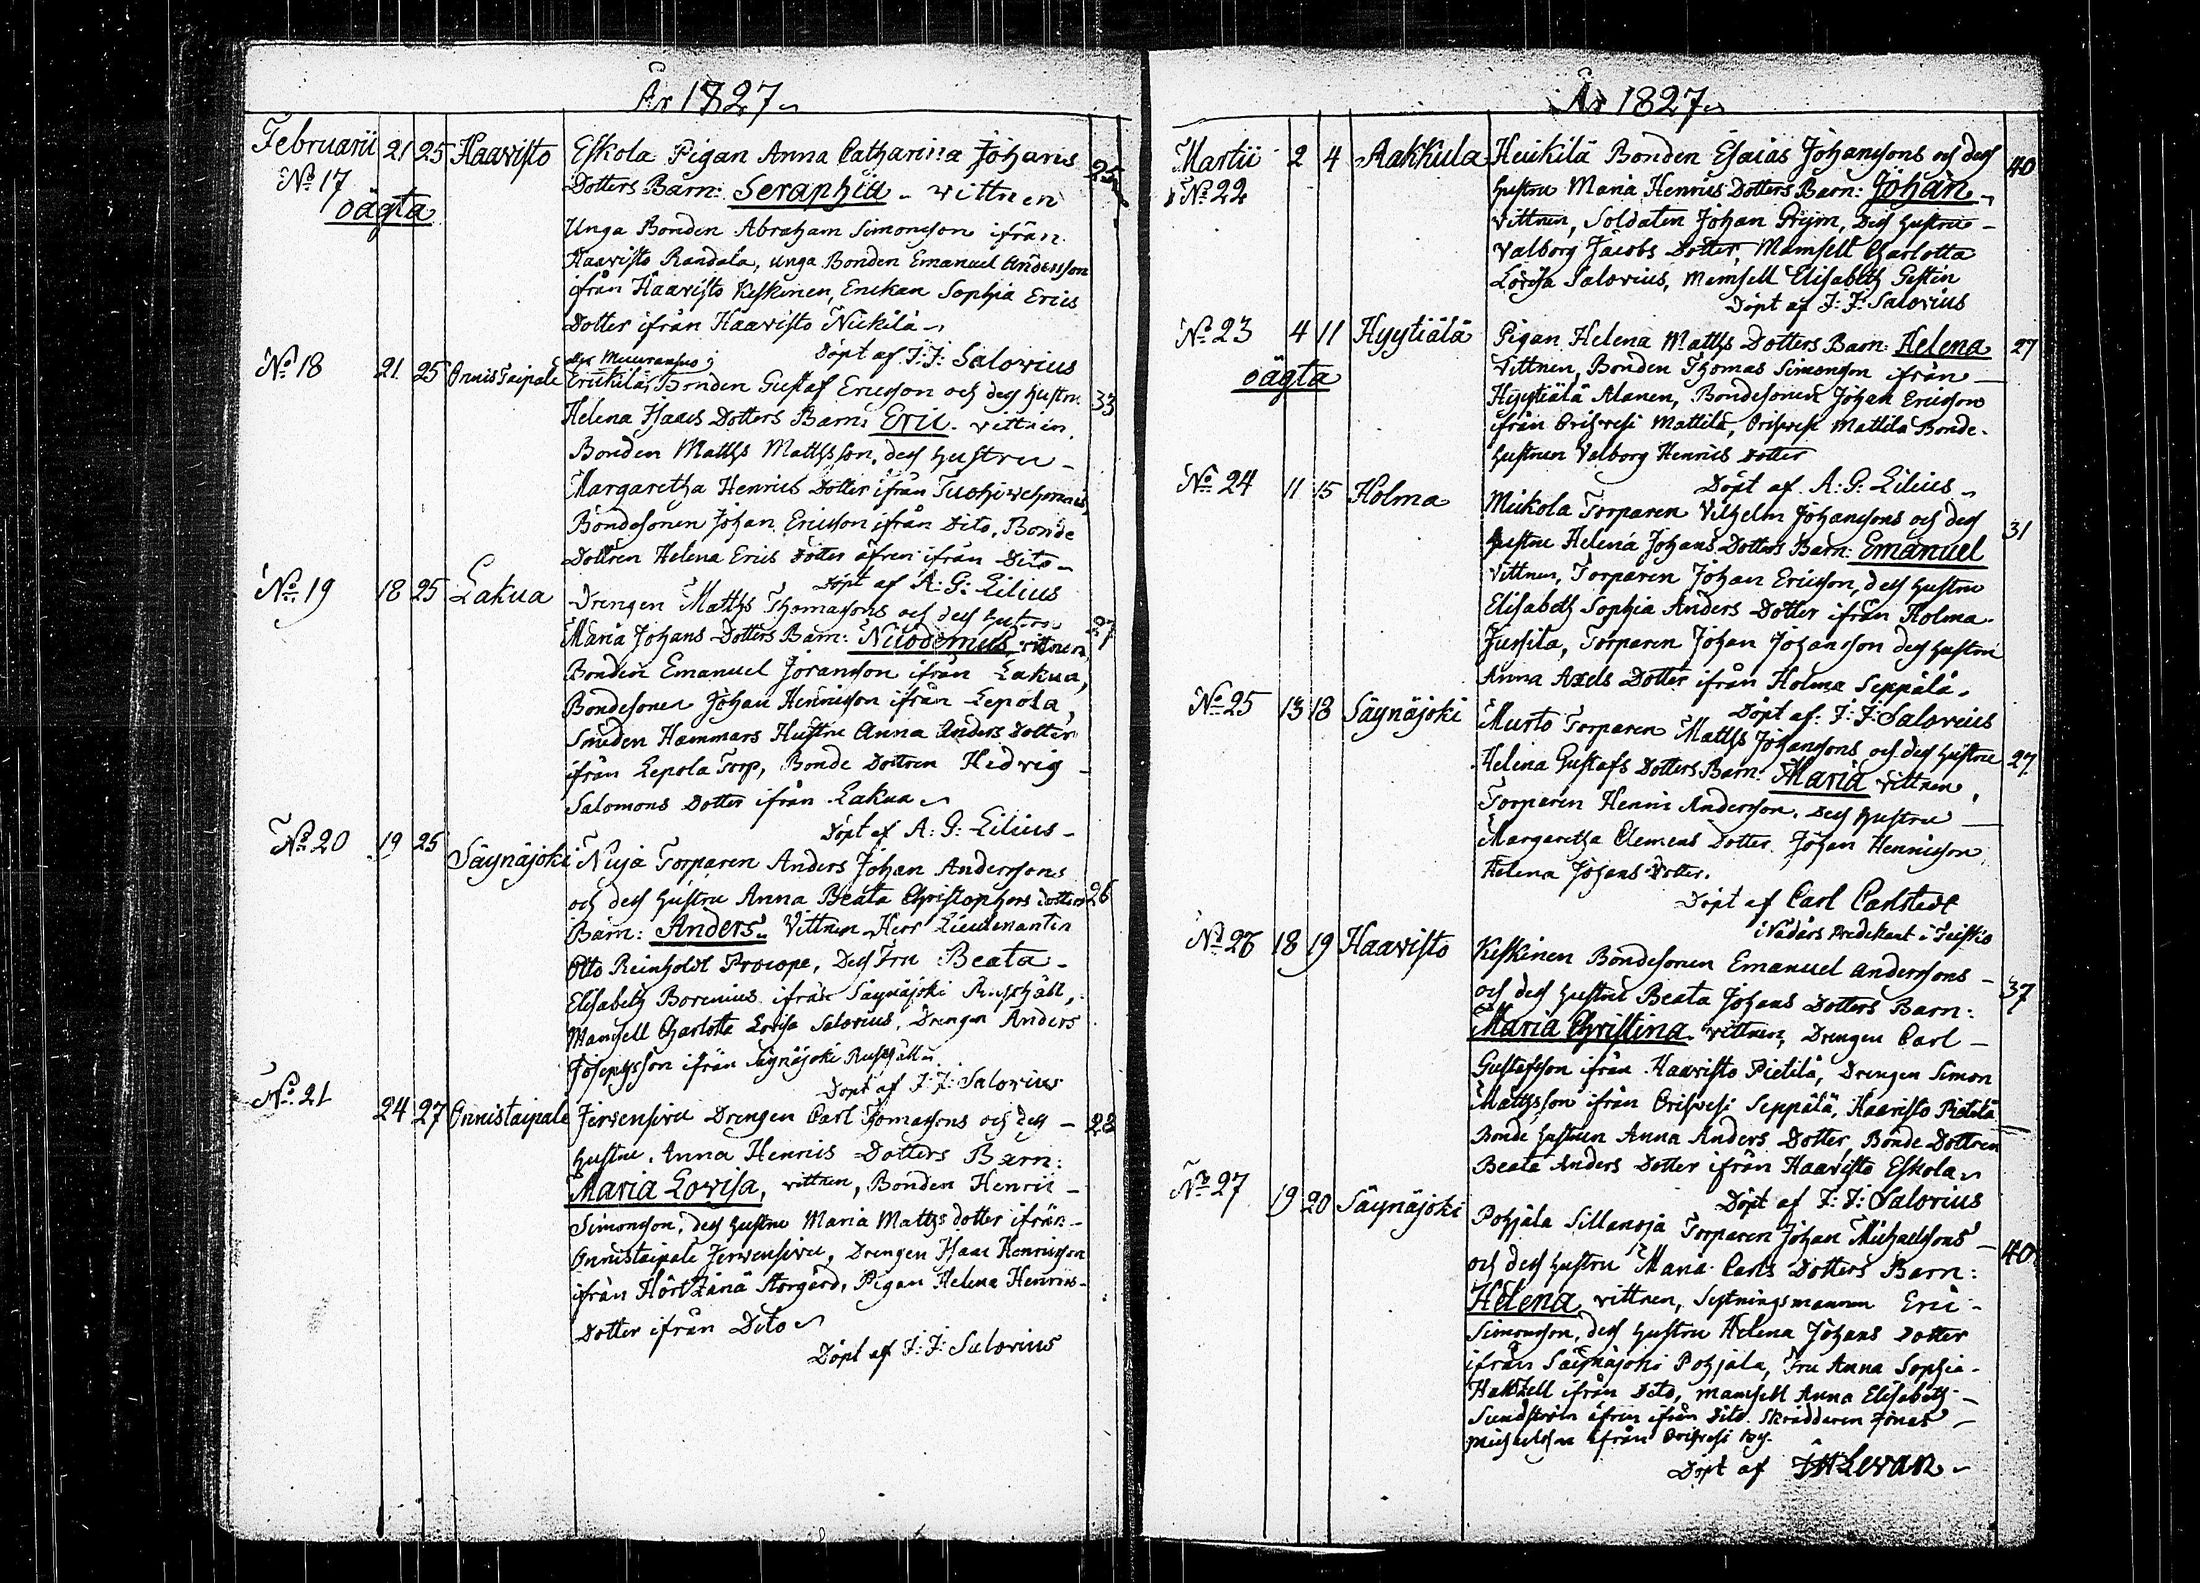 År 1827
Februarii 21 25 Haavisto Eskola Pigan Anna Catharina Johans 25
No 17 Dotters Barn: Seraphia - vittnen
oägta
Unga Bonden Abraham Simonsson ifrån
Haavisto Randala, unga Bonden Emanuel Andersson
ifrån Haavisto Keskinen, Enckan Sophia Erics
Dotter ifrån Haavisto Nickilä
Döpt af J: J: Salovius
No 18 21 25 Onnistaipale Erickilä Bonden Gustaf Ericsson och dess hustru 33
Helena Isaacs Dotters Barn: Eric. vittnen
Bonden Matths Mathsson, dess hustru -
Margaretha Henrics Dotter ifrån
Bondesonen Johan Ericsson ifrån Dito, Bonde
Dottren Helena Erics Dotter äfven ifrån Dito -
Döpt af A: G: Lilius
No 19 18 25 Lakua Drengen Matths Thomassons och dess hustru
Maria Johans Dotters Barn: Nicodemus, vittnen,
Bonden Emanuel Joransson ifrån Lakua,
Bondesonen Johan Henricsson ifrån Lepola,
Smeden Hammars Hustru Anna Anders Dotter
ifrån Lepola Torp, Bonde Dottren Hedvig -
Salomons Dotter ifrån Lakua
Döpt af A: G: Lilius -
No 20 19 25 Säynäjoki Nuja Torparen Anders Johan Anderssons
och dess hustru Anna Beata Christophers dotters 26
Barn: Anders. Vittnen Herr Lieutenanten
Otto Reinholdt Procope, Dess Fru Beata -
Elisabeth Borenius ifrån Säynäjoki Rusthåll,
Mamsell Charlotta Lovisa Salovius, Drengen Anders
Josephsson ifrån Säynäjoki Rusthåll
Döpt af J: J: Salovius
No 21 24 27 Onnistaipale Jervensivu Drengen Carl Thomassons och dess - 28
hustru, Anna Henrics Dotters Barn:
Maria Lovisa, vittnen, Bonden Henric -
Simonsson, dess hustru Maria Matths dotter ifrån -
Onnistaipale Jervensivu, Drengen Isaac Henricsson
ifrån Storgård, Pigan Helena Henrics -
Dotter ifrån Dito
Döpt af J: J: Salovius
År 1827
Martii 2 4 Aakkula Heickilä Bonden Esaias Johanssons och dess 40
No 22 hustru Maria Henrics Dotters Barn: Johan
vittnen, Soldaten Johan Prijm, Dess hustru -
Valborg Jacobs Dotter, Mamsell Charlotta
Lovisa Salovius, Mamsell Elisabeth
Döpt af J: J: Salovius
No 23 4 11 Hyytiälä Pigan Helena Matths Dotters Barn: Helena 27
oägta Vittnen, Bonden Thomas Simonsson ifrån -
Hyytiälä Alanen, Bondesonen Johan Ericsson
ifrån Orihvesi Mattila, Orihvesi Mattila Bonde -
hustrun Valborg Henrics dotter
Döpt af A: G: Lilius
No 24 11 15 Holma Mickola Torparen Vilhelm Johanssons och dess 31
hustru Helena Johans Dotters Barn: Emanuel
Vittnen, Torparen Johan Ericsson, dess hustru
Elisabeth Sophia Anders Dotter ifrån Holma
Jussila, Torparen Johan Johansson dess hustru
Anna Axels Dotter ifrån Holma Seppälä.
Döpt af: J: J: Salovius
No 25 13 18 Säynäjoki Musto Torparen Matths Johanssons och dess hustru 27
Helena Gustafs Dotters Barn: Maria vittnen,
Torparen Henric Andersson, dess hustru -
Margaretha Clemens Dotter, Johan Henricsson
Helena Johans Dotter.
Döpt af Carl Carlstedt
i Nådårs Predikant i Teisko
No 26 18 19 Haavisto Keskinen Bondesonen Emanuel Anderssons - 37
och dess hustru Beata Johans Dotters Barn:
Maria Christina. vittnen, Drengen Carl -
Gustafsson ifrån Haavisto Pietilä, Drengen Simon
Mathsson ifrån Orihvesi Seppälä, Haavisto Pietilä
Bonde hustrun Anna Anders Dotter, Bonde Dottren
Beata Anders Dotter ifrån Haavisto Eskola
Döpt af J: J: Salovius
No 27 19 20 Säynäjoki Pohjala Sillanoja Torparen Johan Michaelssons - 40
och dess hustru Maria Carls Dotters Barn:
Helena, vittnen, Sytningsmannen Eric -
Simonsson, dess hustru Helena Johans Dotter
ifrån Säynäjoki Pohjala, Fru Anna Sophia -
ifrån Dito, Mamsell Anna Elisabeth -
Sundström äfven ifrån Dito. Skräddaren Jonas -
Michaelsson ifrån Orihvesi by.
Döpt af Levan